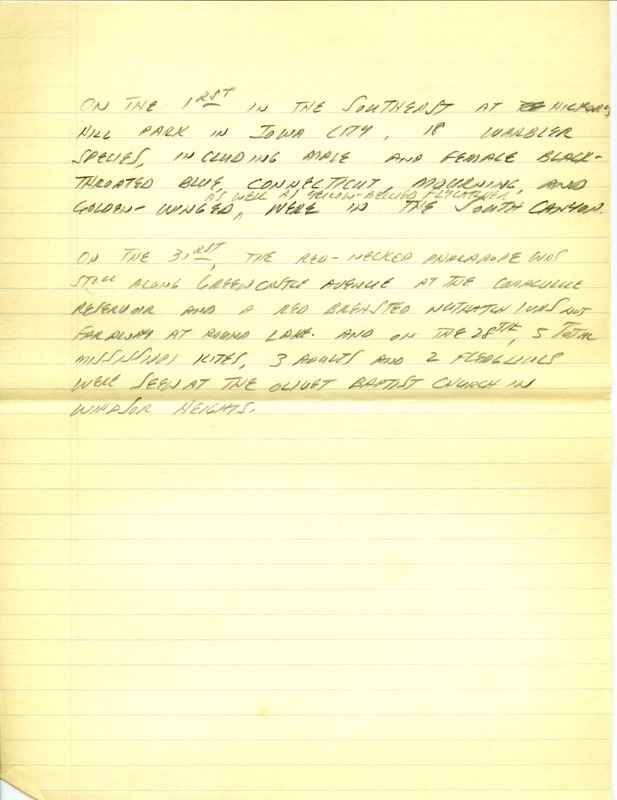 ON THE 1RST IN THE SOUTHEAST AT HICKORY
HILL PARK IN IOWA CITY, 18 WARBLER
SPECIES, INCLUDING MALE AND FEMALE BLACK-
THROATED BLUE, CONNECTICUT, MOURNING, AND
AS WELL AS YELLOW-BELLIED FLYCATCHER,
GOLDEN-WINGED, WERE IN THE SOUTH CANYON.
ON THE 31RST, THE RED-NECKED PHALAROPE WAS
STILL ALONG GREENCASTLE AVENUE AT THE CORALVILLE
RESERVOIR AND A RED BREASTED NUTHATCH WAS NOT
FAR AWAY AT ROUND LAKE. AND ON THE 28TH, 5 TOTAL
MISSISSIPPI KITES, 3 ADULTS AND 2 FLEDGLINGS
WERE SEEN AT THE OLIVET BAPTIST CHURCH IN
WINDSOR HEIGHTS.